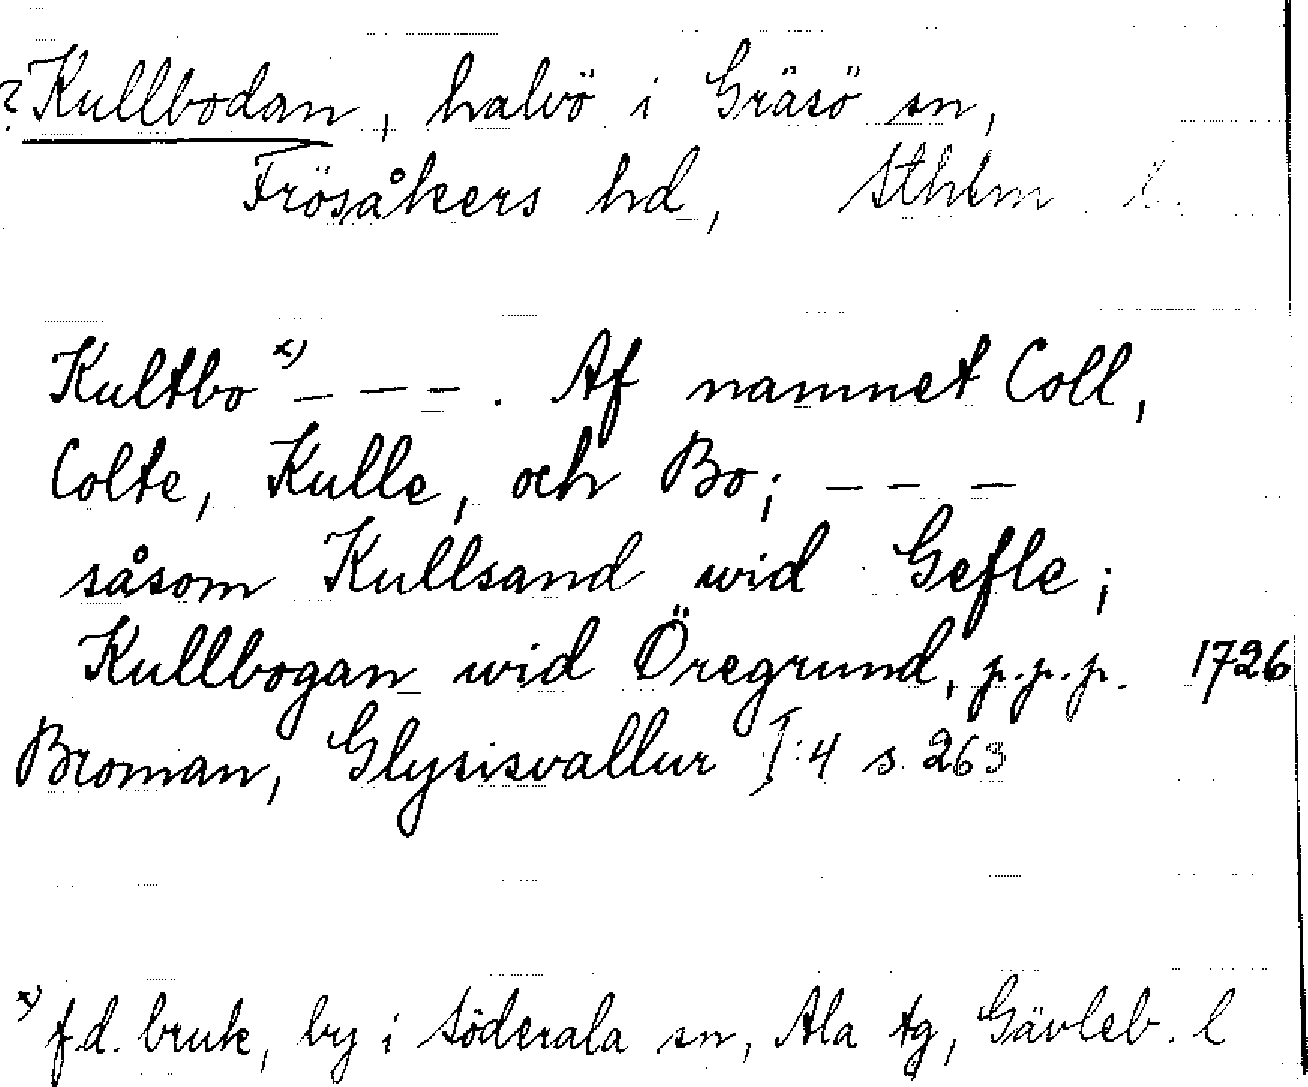 ? Kullbodan, halvö i Gräsö sn,
Frösåkers hd, Sthlm l.
Kultbo x) _ _ _ . Af namnet Coll,
Colte, Kulle, och Bo; _ _ _
såsom Kullsand wid Gefle;
Kullbogan wid Öregrund, p.p.p. 1726
Broman, Glysisvallur I:4 s. 263
x) f.d. bruk, by i Söderala sn, Ala tg, Gävleb. l